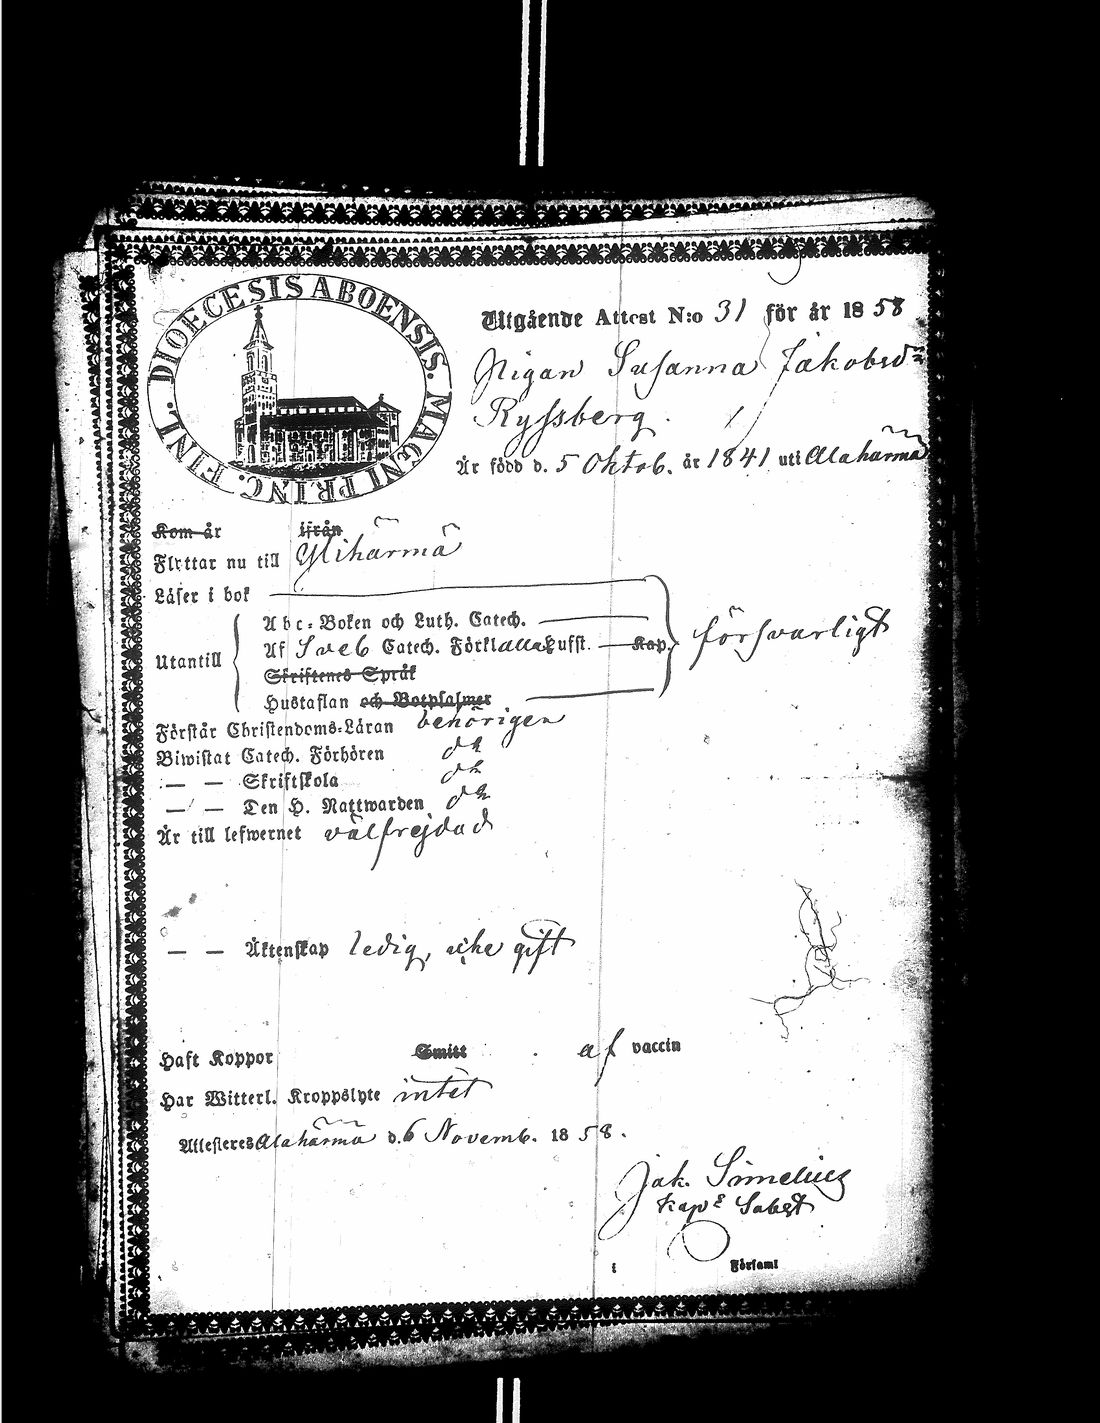 DIOECESIS ABOENSIS. MAGNI PRINC. FINL.
Utgående Attest N:o 31 för år 1858
Pigan Susanna Jakobsdr
Ryssberg.
Är född d. 5 Oktob. år 1841 uti Alahärmä
Kom år ifrån
Flyttar nu till Ylihärmä
Läser i bok
Abc-Boken och Luth. Catech.
Utantill
Af Sveb Catech. Förkl alla Lufst. Kap.
försvarligt
Skriftenes Språk
Hustaflan och Botpsalmer
Förstår Christendoms-Läran behörigen
Biwistat Catech. Förhören do
— — Skriftskola do
— — Den H. Nattwarden do
Är till lefwernet välfrejdad
— — Äktenskap ledig, icke gift
Haft Koppor Smitt af vaccin
Har Witterl. Kroppslyte intet
Attesteres Alahärmä d. 6 Novemb. 1858.
Jak. Simelius
Kap. Subst
i Församl